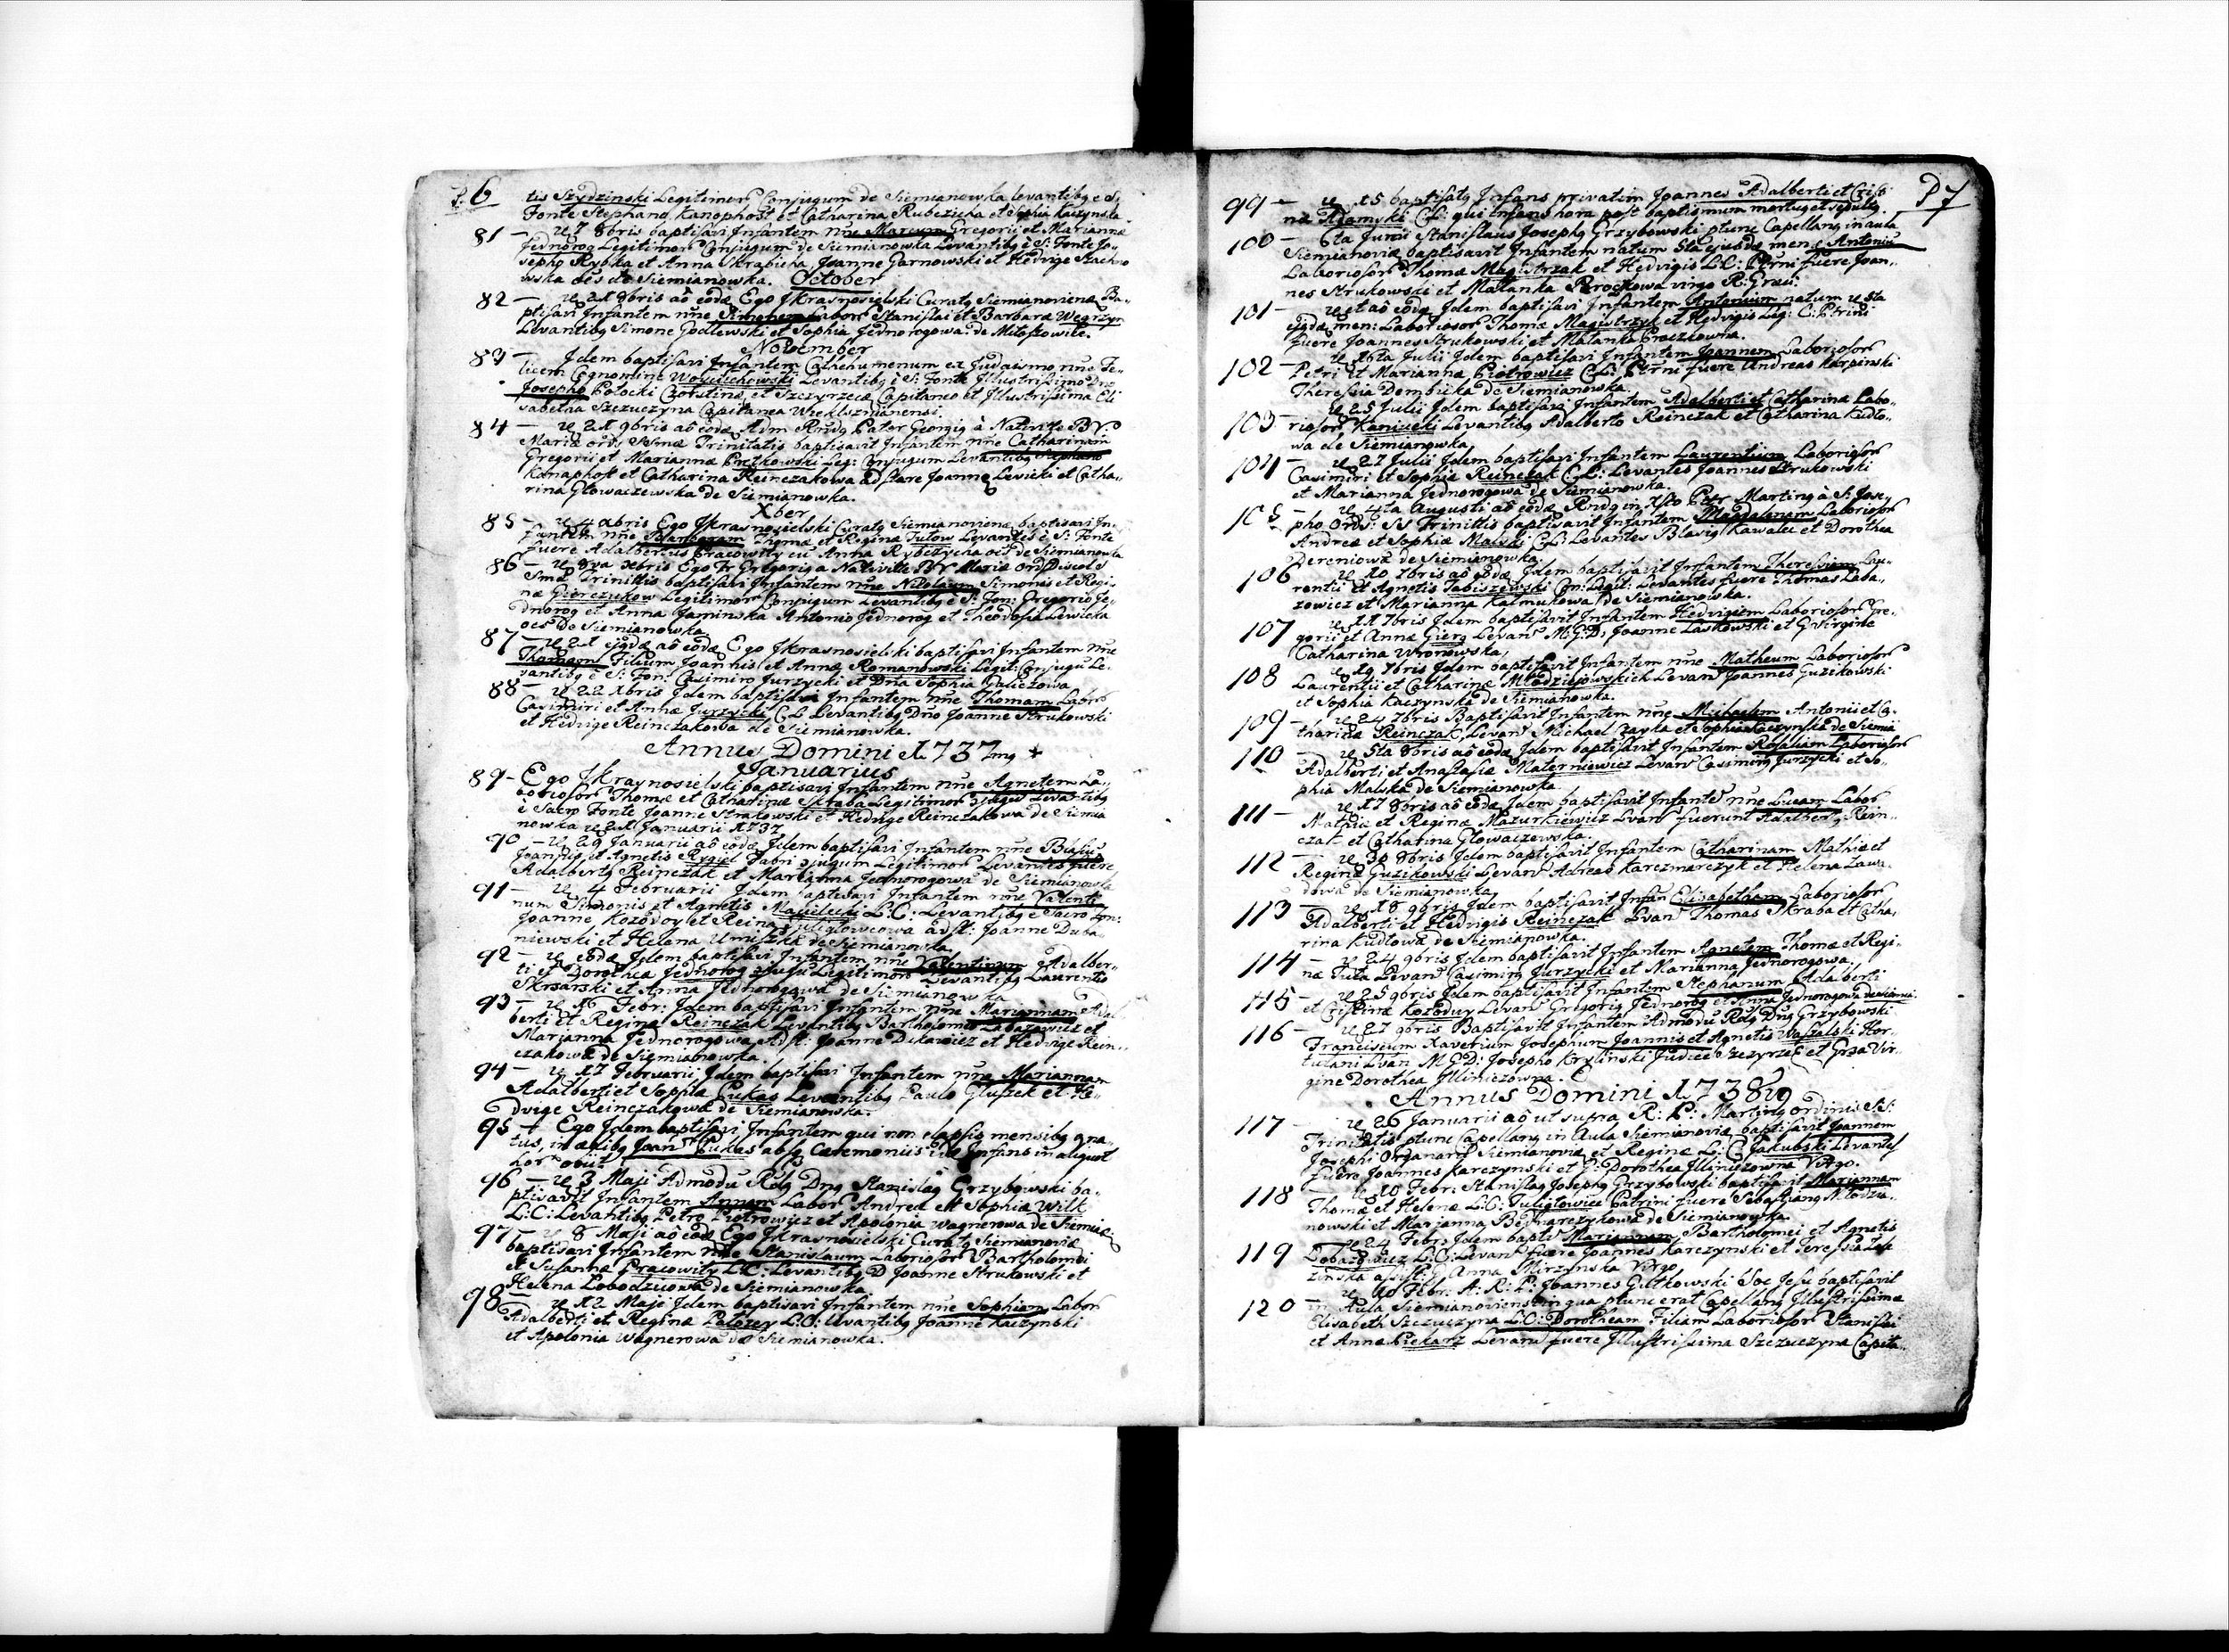 P. 6
tis Szydzinski Legitimor Conjugum de Siemianowka levantibg e S.
Fonte Stephano Kanophost et Catharina Rubezicha et Sophia Kaczynska
81 — 7 8bris baptisavi Infantem nne Marcum Gregorii et Marianna
Jednorog Legitimor Conjugum de Siemianowka Levantibg è S: Fonte Jo-
sepho Rybka et Anna Skrabicha, Joanne Garnowski et Hedvige Stachno
wska de Siemianowka. October
82 — 21 8bris aô eode Ego JKrasnosielski Curatg Siemianoviena Ba-
ptisavi Infantem nne Simonem Labor Stanislai et Barbara Wegrzyn
Levantibg Simone Godlewski et Sophia Jednorogowa de
November
83 — Idem baptisavi Infantem Cathehumenum ex Judaismo nne Fe-
licem Cognomine Woyciechowski Levantibg è S: Fonte Illustrissimo Dno
Josepho Potocki et Szczyrzecia Capitaneo et Illustrissima Eli
sabetha Szczuczyna Capitanea
84 — 21 9bris aô eode Adm Rndg Pater Georgig à Nativitte BV
Maria ord: Ssmæ Trinitatis baptisavit Infantem nne Catharinam
Gregorii et Mariannæ Pretkowski Leg: Conjugum Levantibg Stephano
Kanaphost et Catharina Reinczakowa adstare Joanne Levicki et Catha-
rina Glowaczewska de Siemianowka.
Xber
85 — 4 xbris Ego JKrasnosielski Curatg Siemianoviena baptisavi In-
fantem nne Barbaram Thomæ et Regina Tutow Levantes è S: Fonte
fuere Adalbertus Pracowity cu Anna Rybczycha de Siemianowka
86 — 8va xbris Ego Fr Gregorig a Nativitte BV Maria Ord Discol S
Smæ Trinittis baptisavi Infantem nne Nikolaum Simonis et Regi-
na Gierczukow Legitimor Conjugum Levantibg è S: Fon: Gregorio Je-
dnorog et Anna Jaminska Antonio Jednorog et Theodosia Lewicka
de Siemianowka
87 — 21 ejgdæ aô eodæ Ego JKrasnosielski baptisavi Infantem nne
Thomam Filium Joannis et Annæ Romanowski Legit: Conjugu Le-
vantibg è S: Fon: Casimiro Jurzycki et Dna Sophia Galiczowa
88 — 22 xbris Idem baptisavi Infantem nne Thomam Labor
Casimiri et Annæ Jurzycki C L Levantibg Dno Joanne Strukowski
et Hedvige Reinczakowa de Siemianowka.
Annus Domini 1737mg +
Januarius
89 - Ego JKraynosielski baptisavi Infantem nne Agnetem La-
borioсor Thomæ et Catharinæ Skraba Legitimor Levantibg
è Sacro Fonte Joanne Strukowski et Hedvige Reinczakowa de Siemia
nowka 21 Januarii 1737
90 — 29 Januarii aô eodæ Idem baptisavi Infantem nne Blasiu
Joannis et Agnetis Rygiel Fabri Legitimor Levantes fuere
Adalbertg Reinczak et Marianna Jednorogowa de Siemianowka
91 — 4 Februarii Idem baptisavi Infantem nne Valenti
num Simonis et Agnetis L:C: Levantibg è Sacro Fon:
Joanne Kozodoy et Reina adst: Joanne Duba-
niewski et Helena de Siemianowka
92 — eodæ Idem baptisavi Infantem nne Valentinum Adalber-
ti et Dorothea Jednorog Legitimor Levantibg Laurentio
Skrsarski et Anna Jednorogowa de Siemianowka
93 — 16 Febr: Idem baptisavi Infantem nne Mariannam Adal
berti et Regina Reinczak Levantibg Bartholomeo Labazowicz et
Marianna Jednorogowa Adst: Joanne Dikawiecz et Hedvige Rein-
czakowa de Siemianowka.
94 — 17 Februarii Idem baptisavi Infantem nne Mariannam
Adalberti et Sophia Lukas Levantibg Paulo Gluszek et He-
dvige Reinczakowa de Siemianowka.
95 — Ego Idem baptisavi Infantem qui non elapsis mensibg gna-
tus, in ædibg Joan Lukas absq Cæremoniis Infans in aliquot
hor obiit
96 — 3 Maji Admodu Rdg Dng Stanislag Grzybowski ba-
ptisavit Infantem Annam Labor Andrea et Sophia Wilk
L:C: Levantibg Petro Piotrowicz et Apolonia Wagnerowa de Siemia
97 — 8 Maji aô eodæ Ego JKrasnosielski Curatg Siemianoviæ
baptisavi Infantem nne Stanislaum Laboriosor Bartholomæi
et Susannæ Pracowity L:C: Levantibg D Joanne Strukowski et
Helena Lobodziowa de Siemianowka
98 — 12 Maji Idem baptisavi Infantem nne Sophiam Labor
Adalberti et Regina L:C: Levantibg Joanne Kaczynski
et Apolonia Wagnerowa de Siemianowka.
P7
99 — 15 baptisatg Infans privatim Joannes Adalberti et Cristi
na Adamski C L: qui infans hora post baptismum mortug et sepultg.
100 — 6ta Junii Stanislaus Josephg Grzybowski ptunc Capellang in aula
Siemianoviæ baptisavit Infantem natum 5ta ejusdæ mens Antoniu
Laboriosor Thomæ Magistrzak et Hedvigis L:C: Ptrni fuere Joan-
nes Strukowski et Malanka Proczkowa virgo R: Græci.
101 — et aô eodæ Idem baptisavi Infantem Antonium natum 5ta
ejgdæ men: Laboriosor Thomæ Magistrzyk et Hedvigis Leg: C: Ptrini
fuere Joannes Strukowski et Malanka Proczkowna.
102 — 16ta Julii Idem baptisavi Infantem Joannem Laboriosor
Petri et Mariannæ Piotrowicz C L: Ptrni fuere Andreas Karpinski
Theressia Dembicka de Siemianowka.
103 — 25 Julii Idem baptisavi Infantem Adalberti et Catharinæ Labo-
riosor Kaniucki Levantibg Adalberto Reinczak et Catharina Kudlo-
wa de Siemianowka
104 — 27 Julii Idem baptisavi Infantem Laurentium Laboriosor
Casimiri et Sophia Reinczak C L: Levantes Joannes Strukowski
et Marianna Jednorogowa de Siemianowka.
105 — 4ta Augusti aô eodæ Rndg in Xsto Pter Marting à S: Jose-
pho Ords: Ss Trinittis baptisavit Infantem Magdalenam Laboriosor
Andreæ et Sophiæ Malski C L: Levantes Blasig Kawalec et Dorothea
Dereniowa de Siemianowka.
106 — 10 7bris aô eodæ Idem baptisavit Infantem Theresiam Lau-
rentii et Agnetis Tabiszewski Con: Legit: Levantes fuere Thomas Laba-
zowicz et Marianna Kalmukowa de Siemianowka.
107 11 7bris Idem baptisavi Infantem Hedvigiem Laboriosor Gre-
gorii et Annæ Gierg Levan M:G:D: Joanne Laskowski et G Virgine
Catharina Wronowska,
108 19 7bris Idem baptisavit Infantem nne Matheum Laboriosor
Laurentii et Catharinæ Mlodziejowskich Levan Joannes Guzikowski
et Sophia Kaczynska de Siemianowka.
109 — 24 7bris Baptisavit Infantem nne Michaelem Antonii et Ca-
tharinæ Reinczak, Levan Michael Zayka et Sophia Kaczynska de Siemia
110 — 5ta 8bris aô eodæ Idem baptisavit Infantem Rosaliam Laboriosor
Adalberti et Anastasiæ Materniewicz Levan Casimirg Jurzycki et So-
phia Malska de Siemianowka.
111 — 17 8bris aô eodæ Idem baptisavit Infante nne Lucam Labor
Mathiæ et Reginæ Mazurkiewicz Lvan fuerunt Adalbertg Rein-
czak et Catharina Glowaczewska.
112 — 30 8bris Idem baptisavit Infantem Catharinam Mathiæ et
Regina Guzikowski Levan Adreas Karczmarczyk et Helena Zawa-
dowa de Siemianowka
113 — 18 9bris Idem baptisavit Infan Elisabetham Laboriosor
Adalberti et Hedvigis Reinczak Lvan Thomas Skraba et Catha-
rina Kudlowa de Siemianowka.
114 — 24 9bris Idem baptisavit Infantem Agnetem Thomæ et Regi-
na Tuta Levan Casimirg Jurzycki et Marianna Jednorogowa.
115 — 25 9bris Idem baptisavit Infantem Stephanum Adalberti
et Cristinæ Kozodoy Levan Gregorig Jednorog et Anna Jednorogowa de Siemia.
116 — 27 9bris Baptisavit Infantem Admodu Rdg Dng Grzybowski
Franciscum Xaverium Josephum Joannis et Agnetis Wasalski Hor-
tulani Lvan M G D: Josepho Krylinski Judice Szczyrzec et Grsa Vir-
gine Dorothea Illiniczowna.
Annus Domini 1738
117 26 Januarii aô ut supra R: P: Marting ordinis SS:
Trinitatis ptunc Capellang in Aula Siemianoviæ baptisavit Joannem
Josephi Organar Siemianoviæ et Reginæ L: C Jakubski Levantes
fuere Joannes Karczynski et G: Dorothea Illiniczowna Virgo.
118 — 10 Febr: Stanislag Josephg Grzybowski baptisavit Mariannam
Thomæ et Helenæ L:C: Tuliglowicz Patrini fuere Sebastiang Mlodzia-
nowski et Marianna Bednarczykowa de Siemianowka.
119 24 Febr: Idem bapti Mariannam Bartholomei et Agnetis
Lobazgiewicz L:C: Levan fuere Joannes Karczynski et Teressia
zinska assist: G Anna Mirzynska Virgo
120 — 10 Febr: A: R: P: Joannes Giltkowski Soc Jesu baptisavit
in Aula Siemianoviensi in qua ptunc erat Capellang Illustrissimæ
Elisabeth Szczuczyna L:C: Dorotheam Filiam Laboriosor Stanislai
et Annæ Piekarz Levan fuere Illustrissima Szczuczyna Capita-